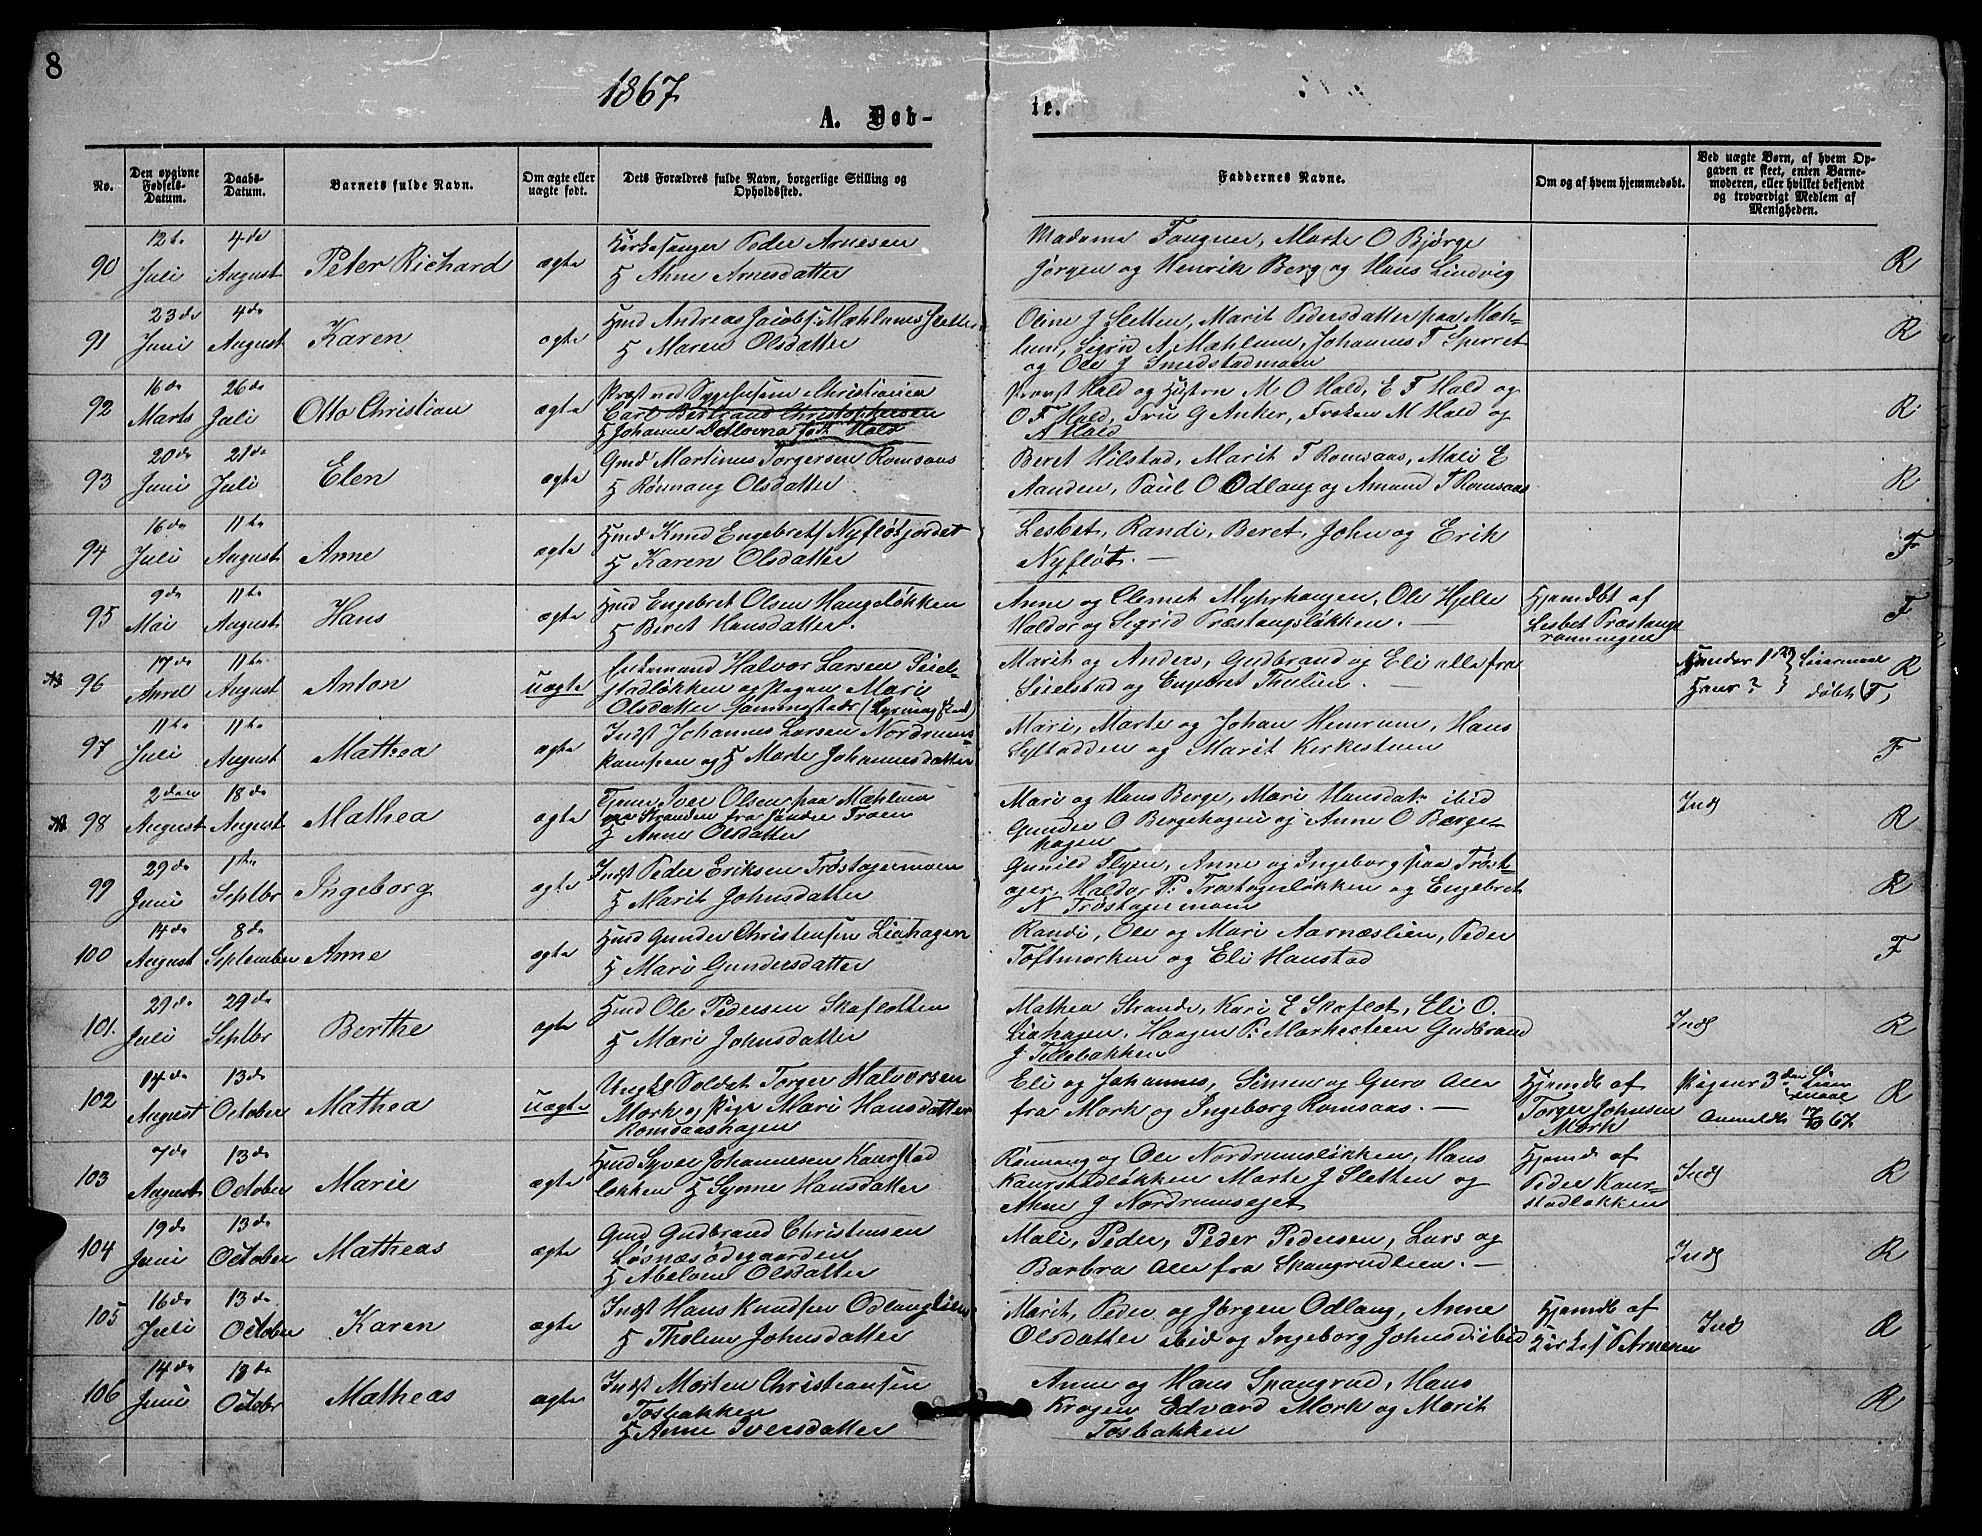 8
1867
A. Døb-
te.
No.
Den opgivne Fødsels-Datum.
Daabs-Datum.
Barnets fulde Navn.
Om ægte eller uægte født.
Dets Forældres fulde Navn, borgerlige Stilling og Opholdssted.
Faddernes Navne.
Om og af hvem hjemmedøbt.
Ved uægte Børn, af hvem Op-
gaven er skeet, enten Barne-
moderen, eller hvilket bekjendt
og troværdigt Medlem af
Menigheden.
90 12te Juli 4de August Peter Richard ægte
Kirkesanger Peder Arnesen
H Ahne Arnesdatter
Madame Faugner, Marte O Bjørge
Jørgen og Henrik Berg og Hans Lindvig
R
91 23de Juni 4de August Karen ægte
Hmd Andreas Jacobs: Mæhlumssletten
H Maren Olsdatter
Oline J Sletten, Marit Pedersdatter paa Mæh-
lum, Sigrid A Mæhlum, Johannes T Sperret
og Ole J Smedstadmoen
R
92 16de Marts 26de Juli Otto Christian ægte
Præst ved Sygehusene i Christiania
Carl Bertrand Christophersen
H Johanne Detlovna født Hald
Provst Hald og Hustru M O Hald, E F Hald og
O F Hald, Fru G Anker, Frøken M Hald og
A Hald
R
93 20de Juni 21de Juli Elen ægte
Gmd Martinus Torgersen Romsaas
H Rønnaug Olsdatter
Beret Hilstad, Marit T Romsaas, Mali E
Aanden, Paul O Odlaug og Amund T Romsaas
R
94 16de Juli 11te August Anne ægte
Hmd Knud Engebrets Nyfløtjordet
H Karen Olsdatter
Lesbet, Randi, Beret, John og Erik
Nyfløt. —
F
95 9de Mai 11te August Hans ægte
Hmd Engebret Olsen Haugeløkken
H Beret Hansdatter.
Anne og Clemet Myhrhaugen, Ole Hjelte
Haldor og Sigrid Præstangsløkken. —
Hjemdbt af
Lesbet Præstangs
rønningen
F
NB 96 17de April 11te August Anton uægte
Enkemand Halvor Larsen Seiel-
stadløkken og Pigen Mari
Olsdatter sammestads
Marit og Anders, Gudbrand og Eli alle fra
Seielstad og Engebret Thulien. —
R
97 11te Juli 11te August Mathea ægte
Indst Johannes Larsen Nordrums-
kampen og H Marte Johannesdatter
Mari, Marte og Johan Hemrum, Hans
Lystadden og Marit Kirkestuen
F
NB 98 2den August 18de August Mathea ægte
Tjener Iver Olsen paa Mæhlum
H Anne Olsdatter
Mari og Hans Berge, Mari Hansdat: ibid
Gunder O Bergehagen og Anne O Berge-
hagen
Inds
R
99 29de Juni 1ste Septbr Ingeborg ægte
Indst Peder Eriksen Trøstagermoen
H Marit Johnsdatter
Gunild Flyen, Anne og Ingeborg paa Trøst-
ager, Haldor P: Trøstagerløkken og Engebret
N Trøstagermoen
R
100 14de August 8de September Anne ægte
Hmd Gunder Christensen Liahagen
H Mari Gundersdatter
Randi, Ole og Mari Aarnæslien, Peder
Toftmorken og Eli Haustad
F
101. 29de Juli 29de Septbr Berthe ægte
Hmd Ole Pedersen Skafløtten
H Mari Johnsdatter
Mathea Strande, Kari E Skafløt, Eli O.
Liahagen, Haagen P: Morkesteen Gudbrand
J Tillebakken
Inds
R
102 14de August 13de October Mathea uægte
Ungk Soldat Torger Halvorsen
Mork og Pige Mari Hansdatter
Romsaashagen
Eli og Johannes, Simen og Guro alle
fra Mork og Ingeborg Romsaas. —
Hjemdb af
Torger Johnsen
Mork
Pigens 3de Leier-
maal
Anmeldt 17/10 67
R
103 7de August 13de October Marie ægte
Hmd Syver Johannesen Kaurstad
løkken H Synne Hansdatter
Rønnaug og Ole Nordrumsløkken, Hans
Kaurstadløkken Marte J Sletten og
Ahne J Nordrumsejet
Hjemdb af
Peder Kaur-
stadløkken
Inds
R
104 19de Juni 13de October Matheas ægte
Gmd Gudbrand Christensen
Løsnæsødegaarden
H Abelone Olsdatter
Mali, Peder, Peder Pedersen, Lars og
Barbra alle fra Spangrudlien. —
Inds
R
105 16de Juli 13de October Karen ægte
Indst Hans Knudsen Odlauglien
H Tholene Johnsdatter
Marit, Peder og Jørgen Odlaug, Anne
Olsdatter ibid og Ingeborg Johnsd: ibid
Hjemdb af
Kirkes: P Arnesen
Inds
R
106 14de Juni 13de Octobr Matheas ægte
Indst Morten Christiansen
Tosbakken
H Anne Iversdatter
Anne og Hans Spangrud, Hans
Krogen Edvard Mork og Marit
Tosbakken
R